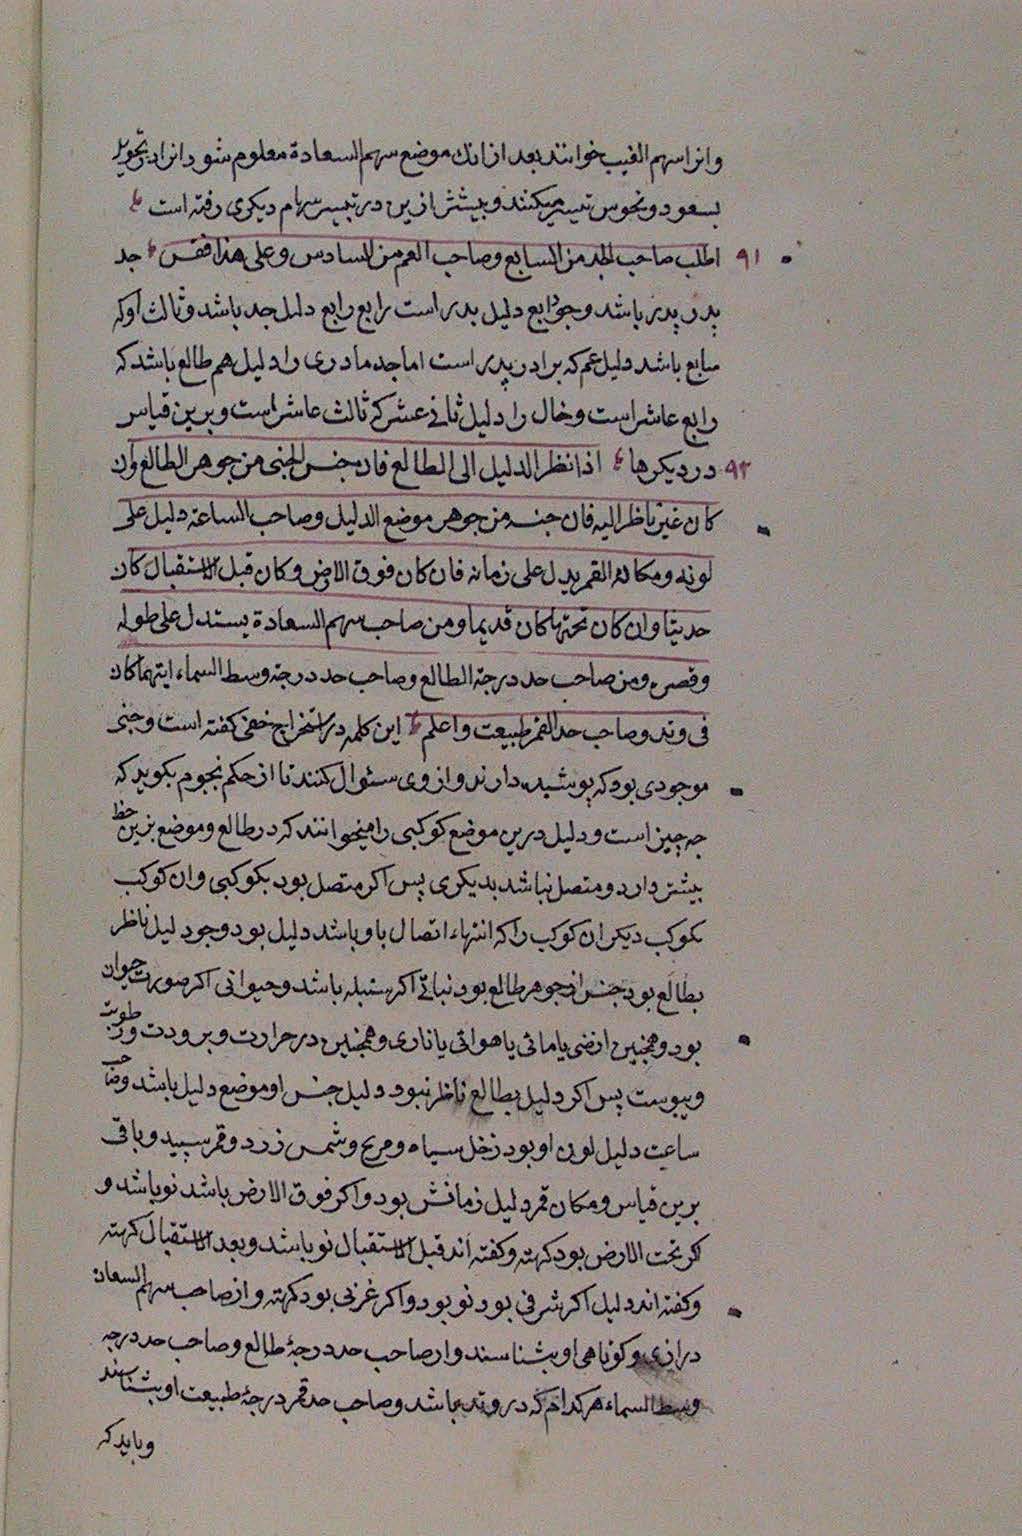 وانرا سهم الغیب خوانند بعد از انك موضع سهم السعادة معلوم شود انرا در تحویل
بسعود و نحوس تسییر میکنند و پیشتر ازین در تسییر سهام دیکری رفته است
۹۱ اطلب صاحب الجد من السابع وصاحب العم من السادس وعلی هذا فقس جد
پدر پدر باشد و چون رابع دلیل پدر است رابع رابع دلیل جد باشد و ثالث او که
سابع باشد دلیل عم که برادر پدر است اما جد مادری را دلیل هم طالع باشد که
رابع عاشر است و خال را دلیل ثانی عشر که ثالث عاشر است و برین قیاس
۹۲ در دیکرها اذا نظر الدلیل الی الطالع فان جنس الخبی من جوهر الطالع وان
کان غیر ناظر الیه فان جنسه من جوهر موضع الدلیل وصاحب الساعة دلیل علی
لونه ومکانه القمر یدل علی زمانه فان کان فوق الارض وکان قبل الاستقبال کان
حدیثا وان کان تحتها کان قدیما ومن صاحب سهم السعادة یستدل علی طوله
وقصره ومن صاحب حد درجة الطالع وصاحب حد درجة وسط السماء ایتهما کان
فی وتد وصاحب حد القمر طبیعت واعلم این کلمه در استخراج خفی کفته است و خبی
موجودی بود که پوشیده دارند و از وی سئوال کنند تا از حکم نجوم بکوید که
چه چیز است و دلیل درین موضع کوکبی را میخوانند که در طالع و موضع نیرین حظ
بیشتر دارد و متصل نباشد بدیکری پس اکر متصل بود بکوکبی وان کوکب
بکوکب دیکر ان کوکب را که انتهاء اتصال باو باشد دلیل بود و چو دلیل ناظر
بطالع بود جنس از جوهر طالع بود نباتی اکر سنبله باشد و حیوانی اکر صورت حیوان
بود و همچنین ارضی یا مائی یا هوائی یا ناری و همچنین در حرارت و برودت و رطوبت
و یبوست پس اکر دلیل بطالع ناظر نبود دلیل جنس او موضع دلیل باشد و صاحب
ساعت دلیل لون او بود زحل سیاه و مریخ و شمس زرد و قمر سپید و باقی
برین قیاس و مکان قمر دلیل زمانش بود و اکر فوق الارض باشد نو باشد و
اکر تحت الارض بود کهنه و کفته اند قبل الاستقبال نو باشد و بعد الاستقبال کهنه
و کفته اند دلیل اکر شرقی بود نو بود و اکر غربی بود کهنه و از صاحب سهم السعادة
درازی و کوتاهی او بشناسند و از صاحب حد درجهٔ طالع و صاحب حد درجه
وسط السماء هر کدام که در وتد باشد و صاحب حد قمر درجهٔ طبیعت او بشناسند
و باید که